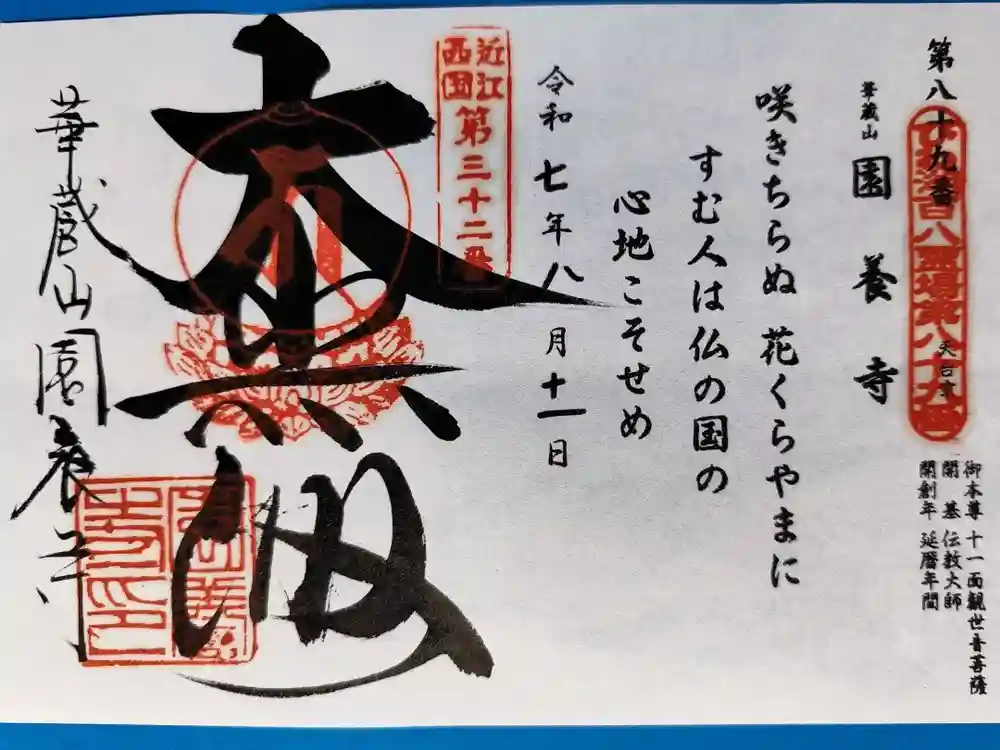 第八十九番
天台宗
百八霊場第八十九番
御本尊 十一面観世音菩薩
開基 伝教大師
開創年 延暦年間
華蔵山
園養寺
咲きちらぬ 花くらやまに
すむ人は仏の国の
心地こそせめ
令和七年八月十一日
近江
西国
第三十二番
華蔵山園養寺